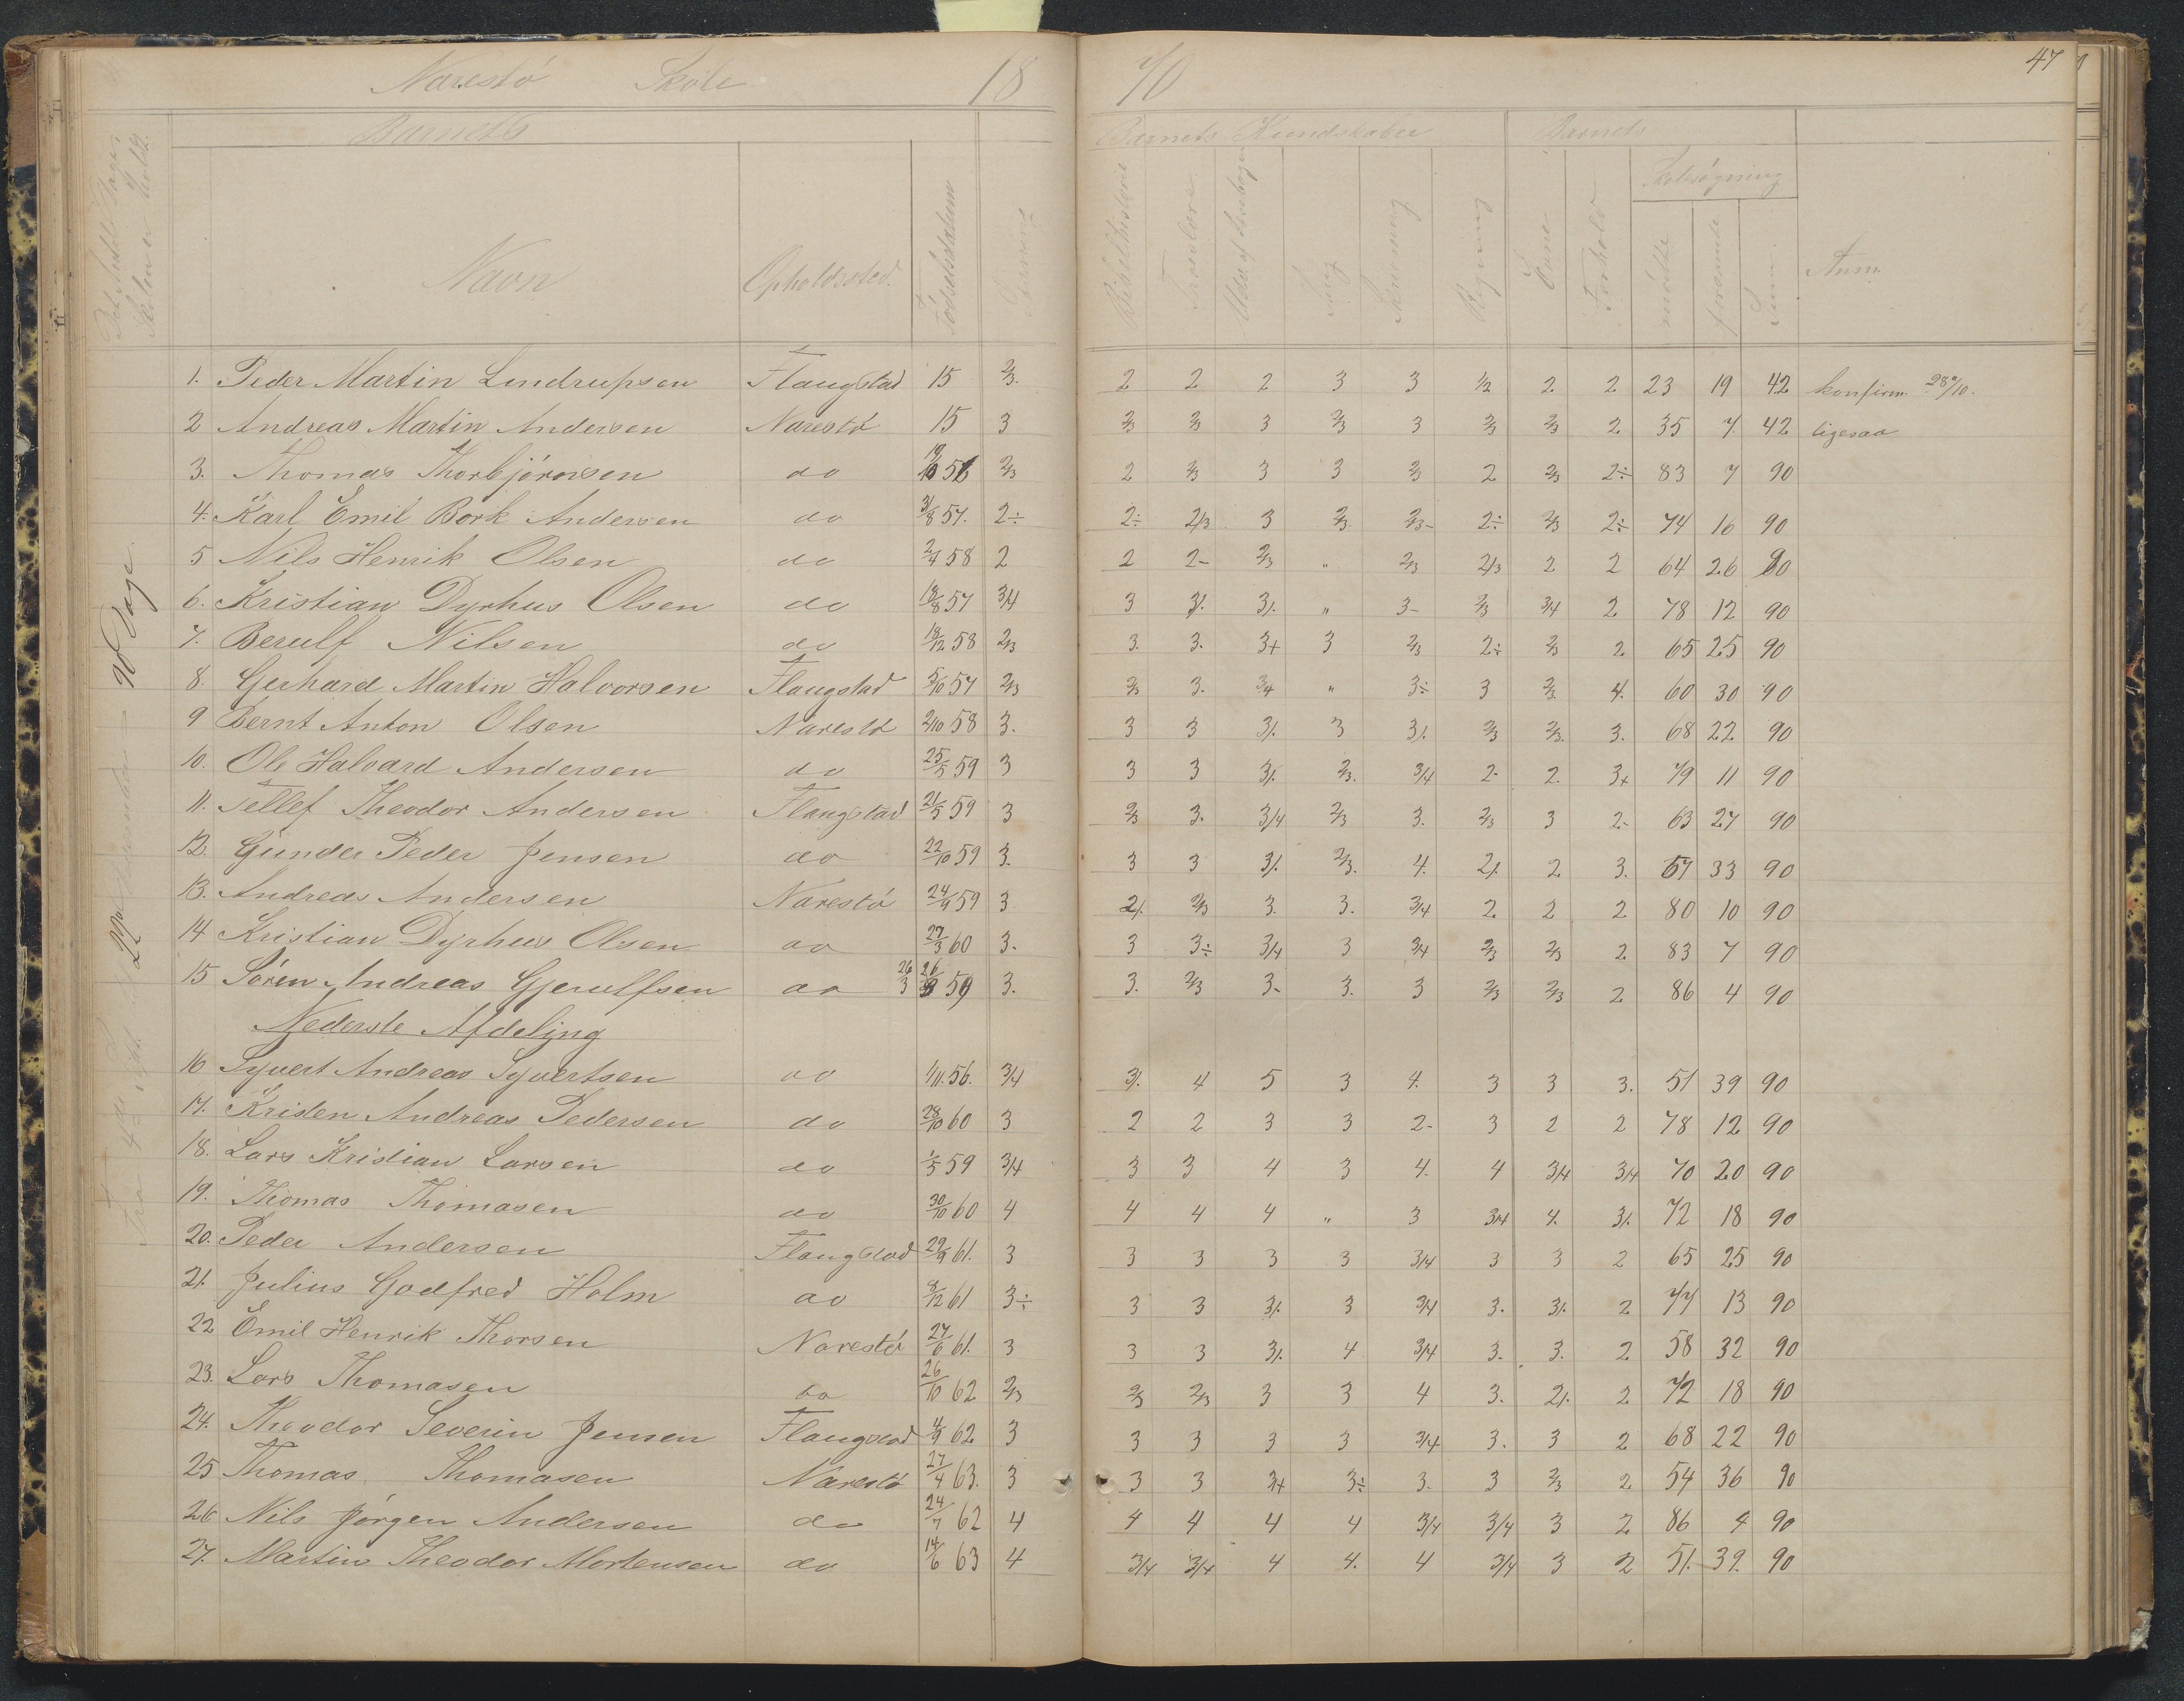 Narestö Skole 18 70 47
Barnets Barnets Kundskaber Barnets
Skolesögning
Det Antal Dage Skolen er holdt.
Navn Opholdssted. Födselsdatum Læsning Bibelhistorie Troeslære Udvalg af Læsebogen Sang Skrivning Regning Evne Forhold mödte forsömte Sum Anm.
1. Peder Martin Lindrupsen Flaugstad 15 2/3. 2 2 2 3 3 1/2 2 2 23 19 42 konfirm. 28 9/10.
2 Andreas Martin Andersen Narestö 15 3 2/3 2/3 3 2/3 3 2/3 2/3 2 35 7 42 ligesaa
3. Thomas Thorbjörnsen do 19/10 56 2/3 2 2/3 3 3 2/3 2 2/3 2÷ 83 7 90
4. Karl Emil Bork Andersen do 31/8 57. 2÷ 2÷ 2/3 3 2/3 2/3- 2÷ 2/3 2÷ 74 16 90
5 Nils Henrik Olsen do 2/4 58 2 2 2- 2/3 " 2/3 2/3 2 2 64 26 90
6. Kristian Dyrhus Olsen do 18/8 57 3/4 3 3/. 3/. " 3- 2/3 3/4 2 78 12 90
7. Berulf Nilsen do 18/12 58 2/3 3. 3. 3+ 3 2/3 2÷ 2/3 2 65 25 90
8. Gerhard Martin Halvorsen Flaugstad 5/10 57 2/3 2/3 3. 3/4 " 3÷ 3 2/3. 4. 60 30 90
9 Bernt Anton Olsen Narestö 2/10 58 3. 3 3 3/. 3 3/. 2/3 2/3. 3. 68 22 90
10. Ole Halvard Andersen do 25/5 59 3 3 3 3/. 2/3. 3/4 2- 2. 3+ 79 11 90
11. Tellef Theodor Andersen Flaugstad 21/5 59 3 2/3 3. 3/4 2/3 3. 2/3 3 2- 63 27 90
12. Gunder Peder Jensen do 22/10 59 3. 3 3 3/. 2/3. 4. 2/. 2 3. 57 33 90
13. Andreas Andersen Narestö 24/9 59 3 2/. 2/3 3. 3. 3/4 2. 2 2 80 10 90
14 Kristian Dyrhus Olsen do 27/3 60 3. 3 3÷ 3/4 3 3/4 2/3 2/3 2 83 7 90
15 Sören Andreas Gjerulfsen do 26/3 26/3 59 3. 3. 2/3 3- 3. 3 2/3 2/3 2 86 4 90
Nederste Afdeling
16 Syvert Andreas Syvertsen do 1/11. 56. 3/4 3/. 4 5 3 4. 3 3 3. 51 39 90
17. Kristen Andreas Pedersen do 28/10 60 3 2 2 3 3 2- 3 2 2 78 12 90
18. Lars Kristian Larsen do 1/5 59 3/4 3 3 4 3 4. 4 3/4 3/4 70 20 90
19. Thomas Thomasen do 30/10 60 4 4 4 4 " 3 3/4 4. 3/. 72 18 90
20. Peder Andersen Flaugstad 29/9 61. 3 3 3 3 3 3/4 3 3 2 65 25 90
21. Julius Godfred Holm do 8/12 61 3÷ 3 3 3/. 3 3/4 3. 3/. 2 77 13 90
22 Emil Henrik Thorsen Narestö 27/6 61. 3 3 3 3/. 4 3/4 3. 3. 2 58 32 90
23. Lars Thomasen do 26/10 62 2/3 2/3 2/3 3 3 4 3. 2/. 2 72 18 90
24. Theodor Severin Jensen Flaugstad 4/9 62 3 3 3 3 3 3/4 3. 3 2 68 22 90
25 Thomas Thomasen Narestö 27/4 63. 3 3 3 3+ 3÷ 3. 3 2/3 2 54 36 90
26 Nils Jörgen Andersen do 24/7 62 4 4 4 4 4 3/4 3/4 3 2 86 4 90
27. Martin Theodor Mortensen do 14/6 63 4 3/4 3/4 4 4. 4 3/4 3 2 51. 39. 90
90 Dage.